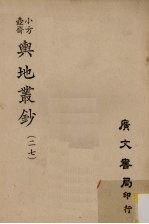 小方壺齋
輿地叢鈔
(二七)
廣文書局
印行